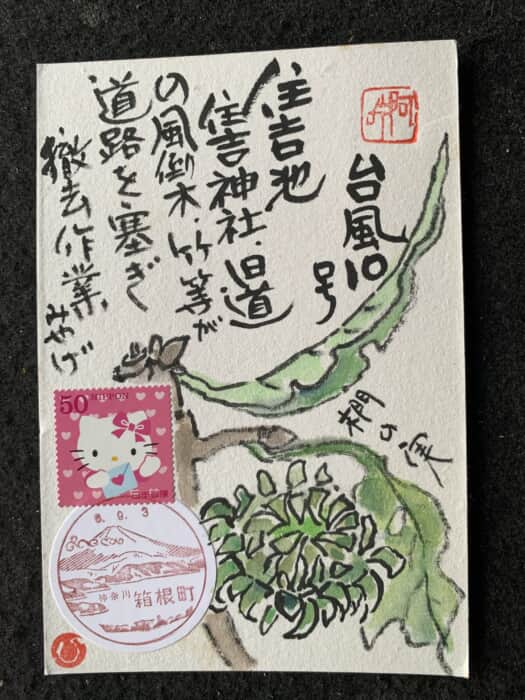 台風10号
住吉池
住吉神社・旧道
の風倒木・竹等が
道路を塞ぎ
撤去作業みやげ
椚の実
50 NIPPON
日本郵便
6. 9. 3
神奈川 箱根町